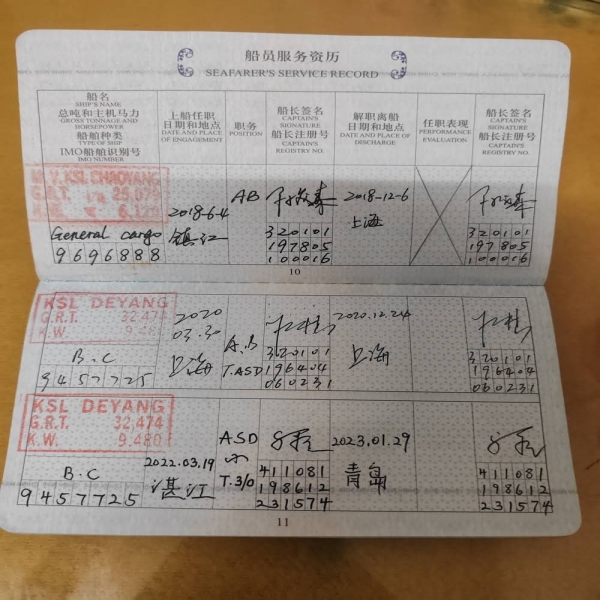 船员服务资历
SEAFARER'S SERVICE RECORD
船名
SHIP'S NAME
总吨和主机马力
GROSS TONNAGE AND
HORSEPOWER
船舶种类
TYPE OF SHIP
IMO船舶识别号
IMO NUMBER
上船任职
日期和地点
DATE AND PLACE
OF ENGAGEMENT
职务
POSITION
船长签名
CAPTAIN'S
SIGNATURE
船长注册号
CAPTAIN'S
REGISTRY NO.
解职离船
日期和地点
DATE AND PLACE OF
DISCHARGE
任职表现
PERFORMANCE
EVALUATION
船长签名
CAPTAIN'S
SIGNATURE
船长注册号
CAPTAIN'S
REGISTRY NO.
M.V.KSL CHAOYANG
G.R.T. 25,07
General cargo
9696888
2018-6-4
镇江
AB
320101
197805
100016
2018-12-6
上海
320101
197805
100016
10
KSL DEYANG
G.R.T. 32,474
K.W. 9,480
B.C
9457725
2020
03.30
上海
A.B
T.ASD
320101
196404
060231
2020.12.24
上海
320101
196404
060231
KSL DEYANG
G.R.T. 32,474
K.W. 9,480
B.C
9457725
2022.03.19
湛江
ASD
T.3/0
411081
198612
231574
2023.01.29
青岛
411081
198612
231574
11